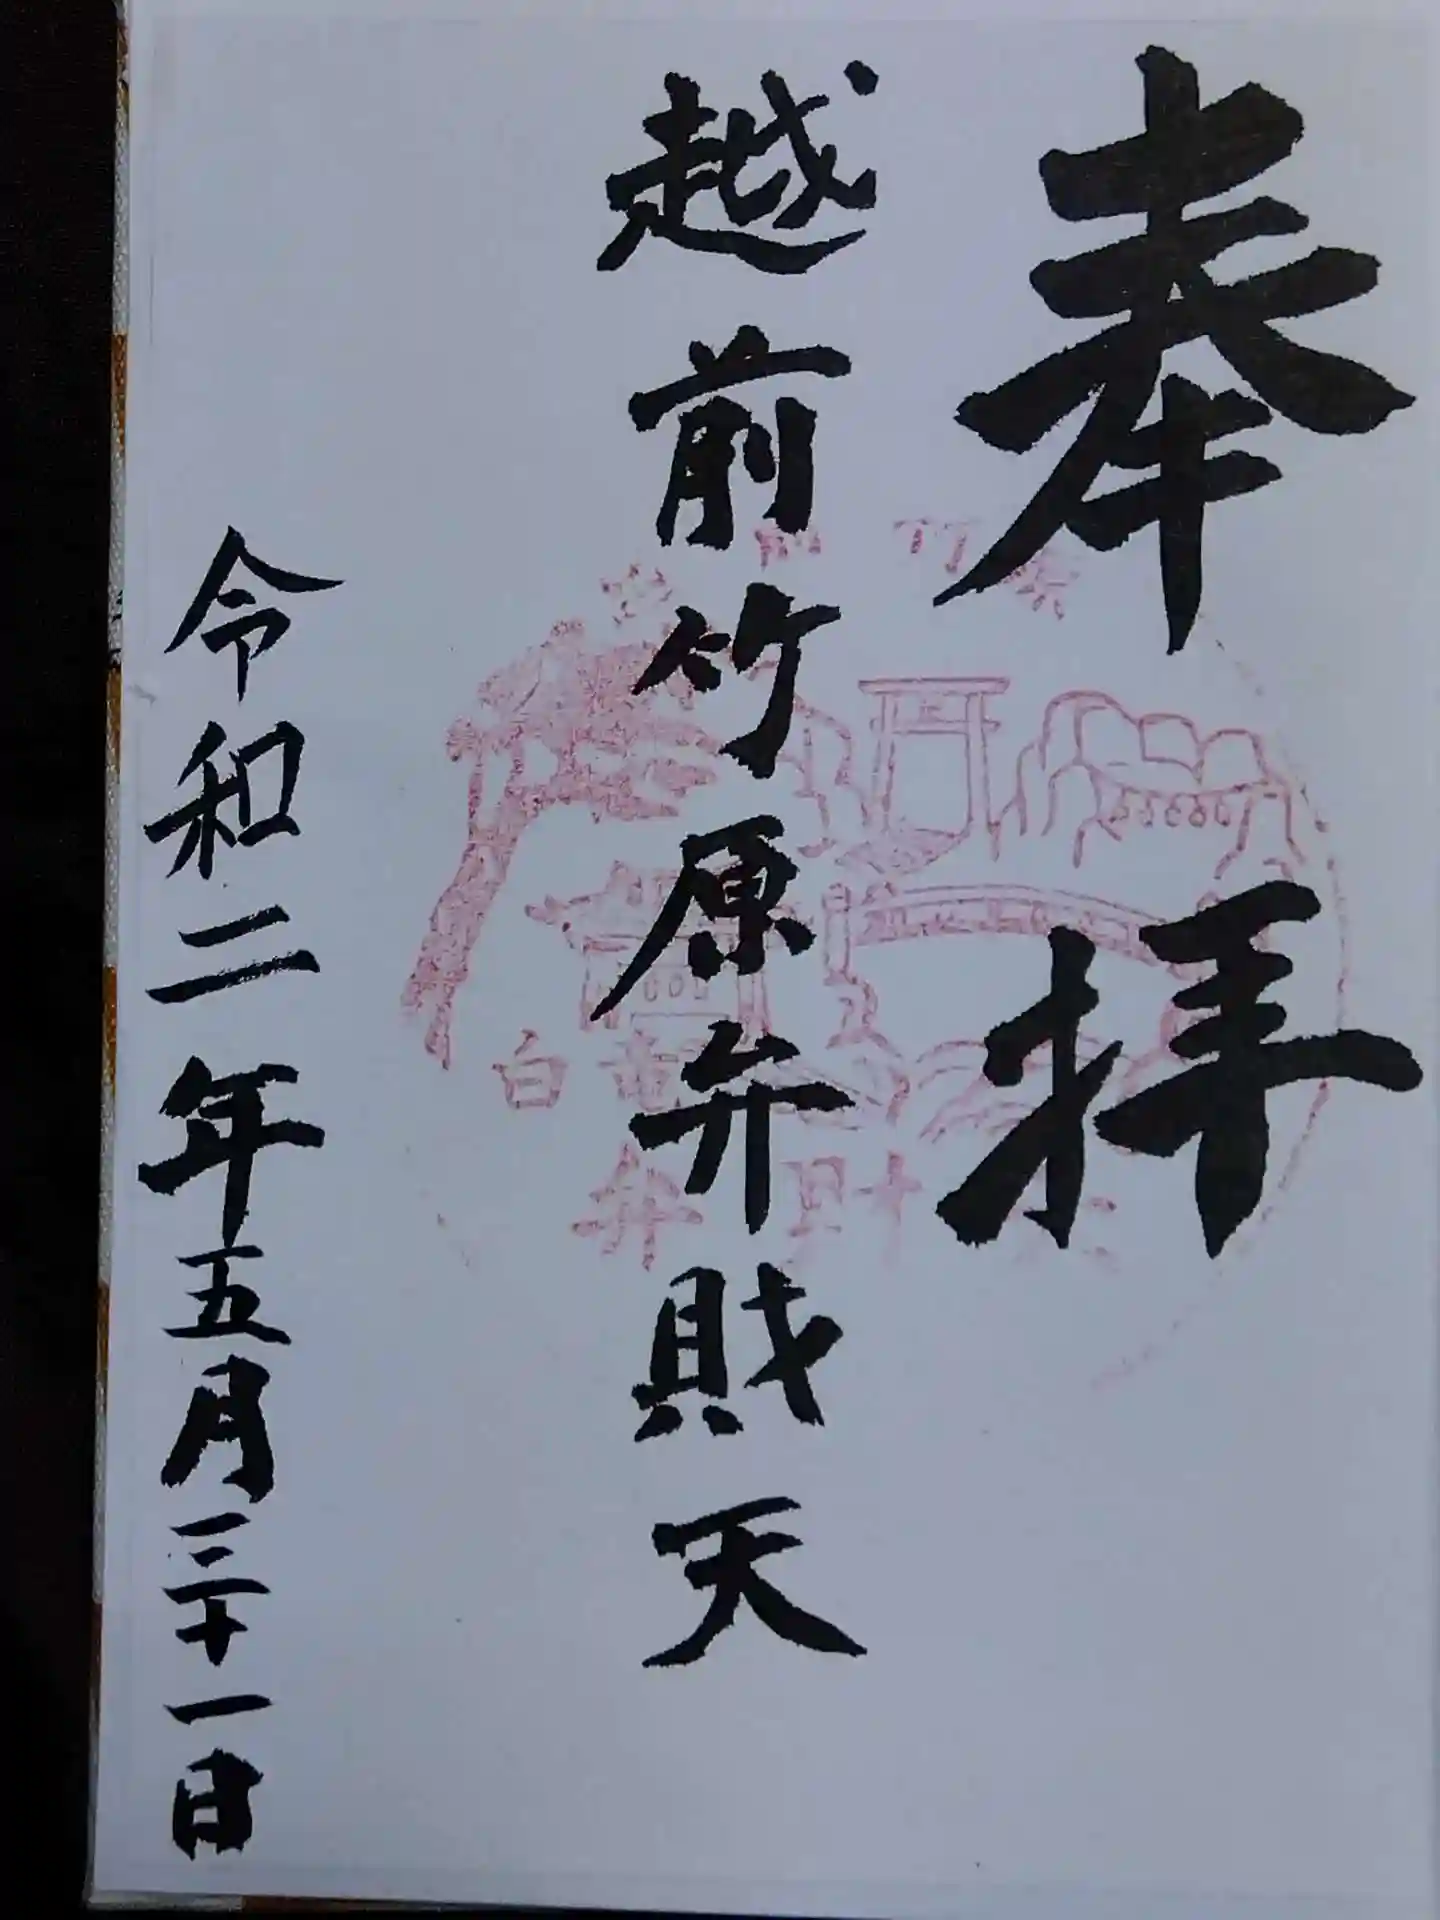 奉拝
越前竹原弁財天
令和二年五月三十一日
白竜
弁財天